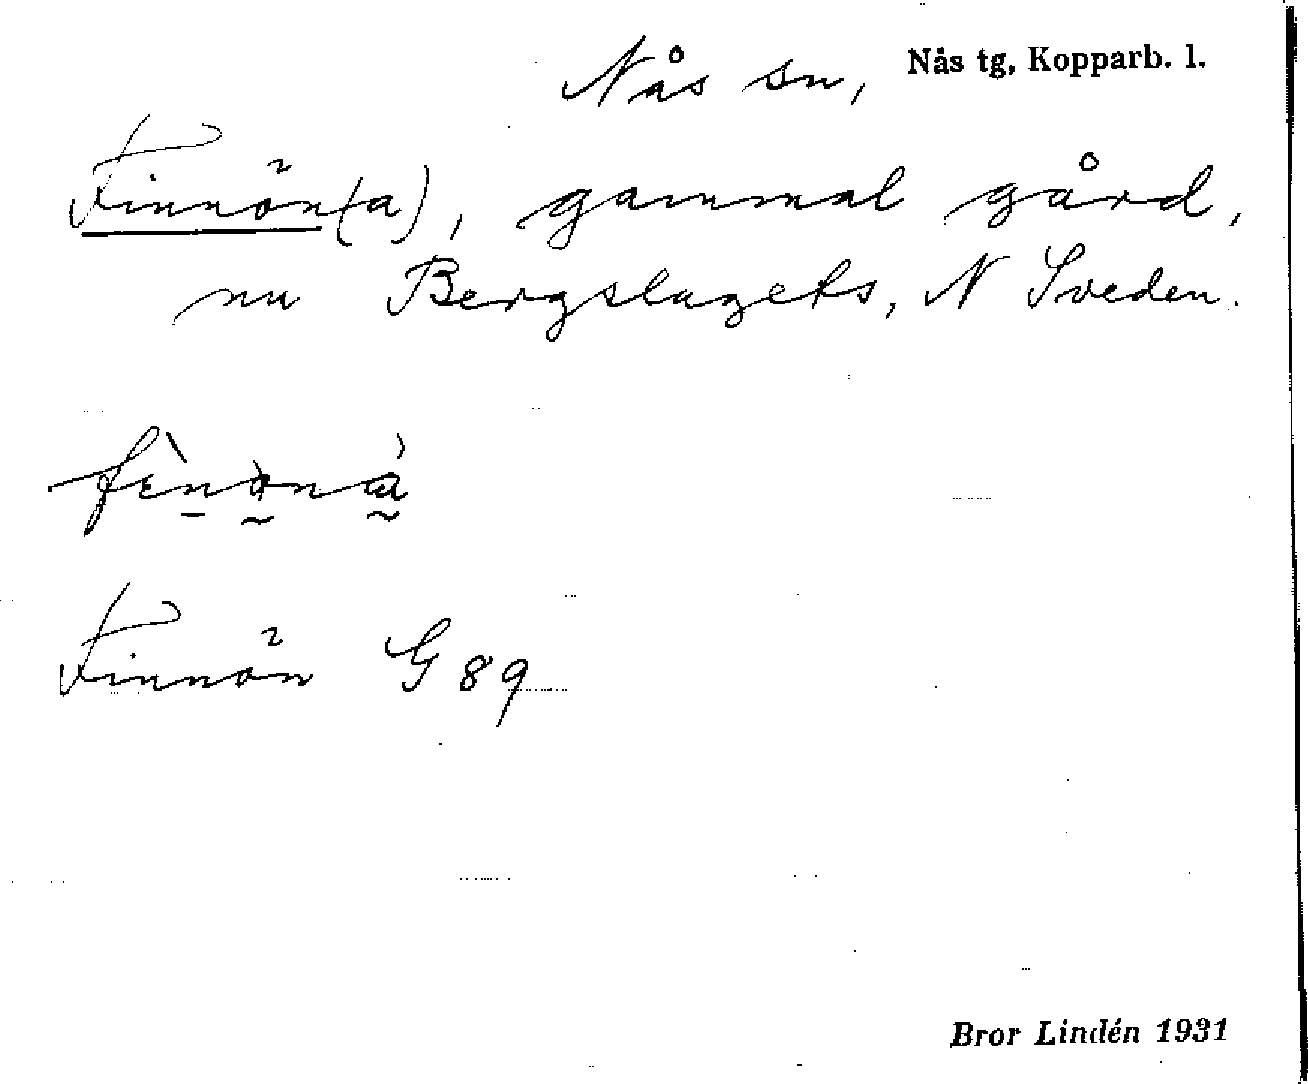 Nås sn, Nås tg, Kopparb. l.
Finnön(a), gammal gård,
nu Bergslagets, N Sveden.
Finnön G 89
Bror Lindén 1931